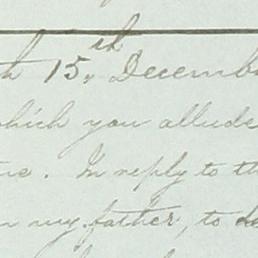 15th December
which you allude
. In reply to th
my father, to